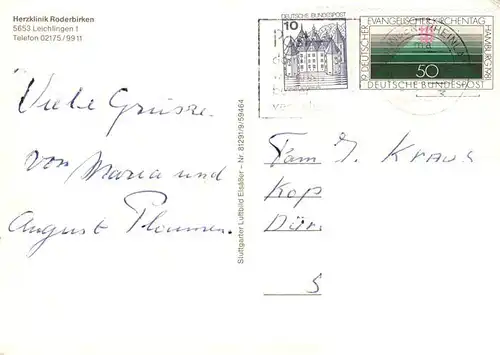 Herzklinik Roderbirken
5653 Leichlingen 1
Telefon 02175/9911
Viele Grüsse
von Maria und
August
Stuttgarter Luftbild Elsäßer – Nr. 81291/9/59464
DEUTSCHE BUNDESPOST
10
19. DEUTSCHER EVANGELISCHER KIRCHENTAG HAMBURG 1981
50
DEUTSCHE BUNDESPOST
Fam J. Kraus
Kop
Dür
5